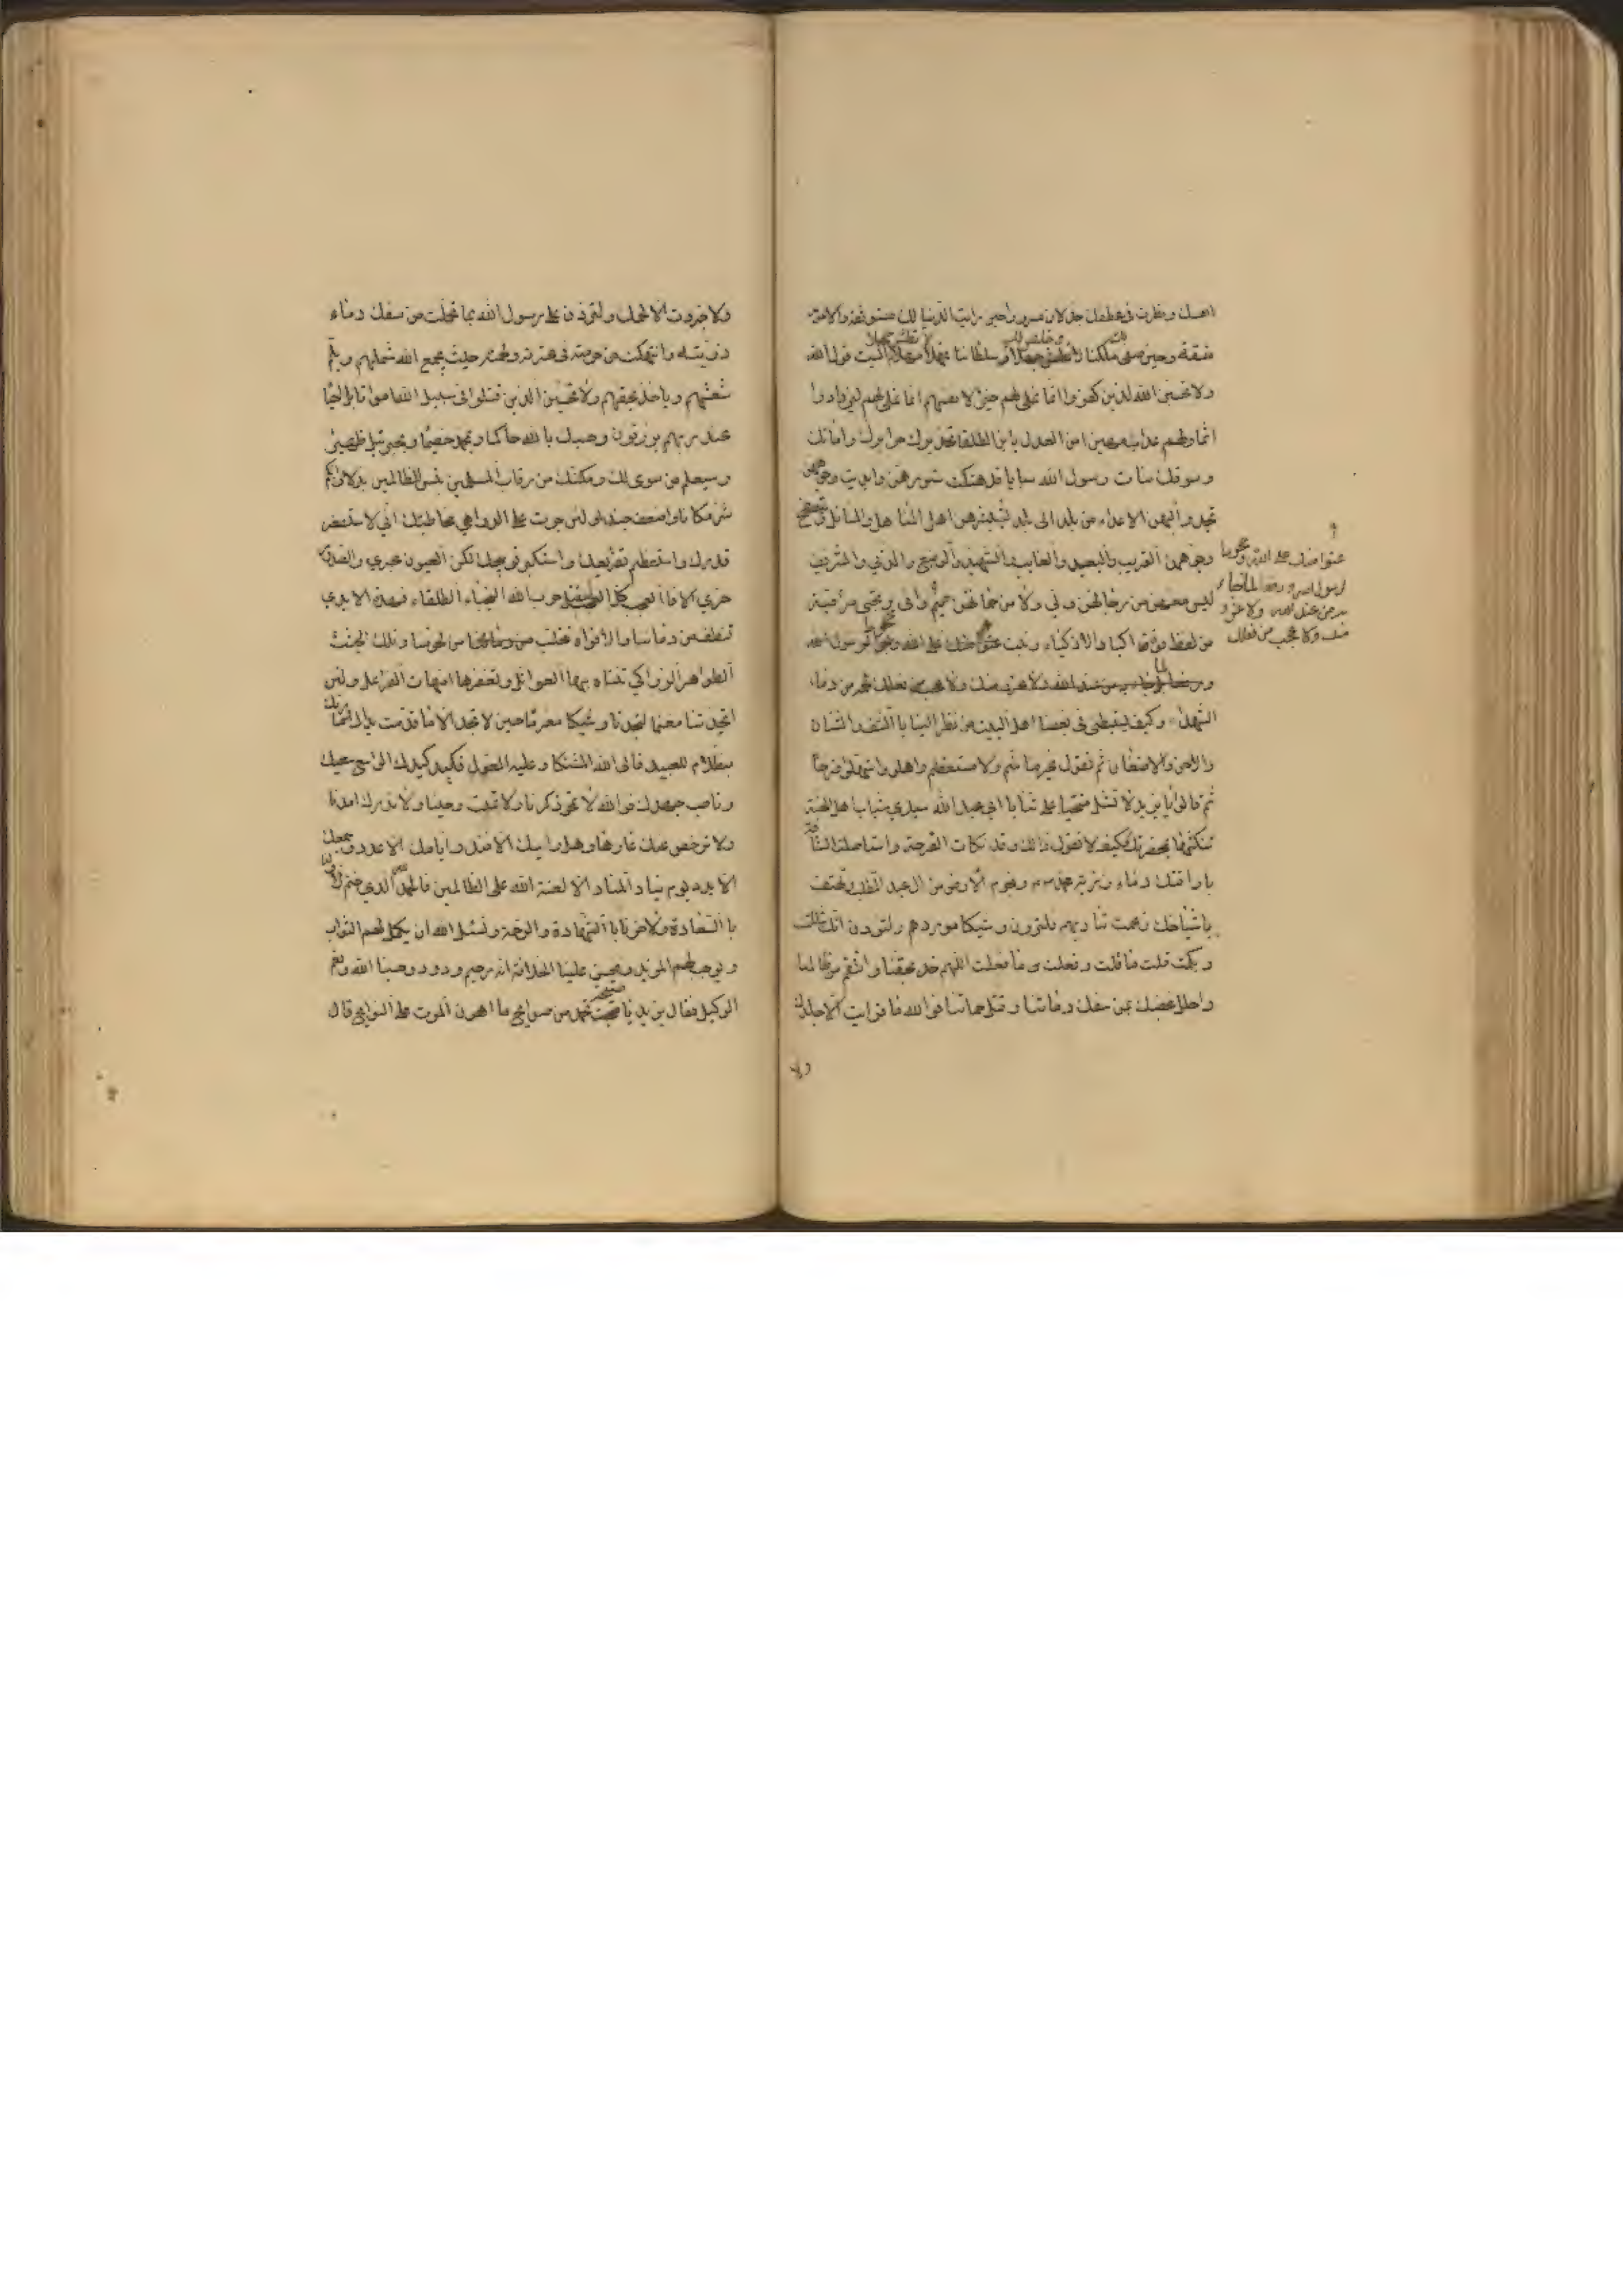 ونظرت في عطفك جذلان مسرورا حين رايت الدنيا لك مستوثقة والامور
متسقة وحين صفى ملكنا وسلطاننا فمهلا مهلا انسيت قول الله
ولا تحسبن الذين كفروا انما نملي لهم خير لانفسهم انما نملي لهم ليزدادوا
اثما ولهم عذاب مهين امن العدل يا ابن الطلقا تخديرك حرايرك وامائك
وسوقك بنات رسول الله سبايا قد هتكت ستورهن وابديت وجوههن
تحدو بهن الاعداء من بلد الى بلد ويستشرفهن اهل المناهل والمناقل ويتصفح
وجوههن القريب والبعيد والغايب والشهيد والوضيع والدني والشريف
ليس معهن من رجالهن ولي ولا من حماتهن حميم وانى يرتجى مراقبة
من لفظ فوه اكباد الاذكياء ونبت
من عند الله ولا غرو منك ولا عجب من فعلك
الشهداء وكيف يستبطي في بغضنا اهل البيت من نظر الينا بالشنف والشنان
والاحن والاضغان ثم تقول غير متاثم ولا مستعظم واهلوا واستهلوا فرحا
ثم قالوا يا يزيد لا تشل منتحيا على ثنايا ابي عبد الله سيدي شباب اهل الجنة
تنكثها بمخصرتك وكيف لا تقول ذالك وقد نكات القرحة واستاصلت الشافة
باراقتك دماء ذرية محمد ونجوم الارض من ال عبد المطلب وتهتف
باشياخك زعمت تناديهم فلتردن وشيكا موردهم ولتودن انك شللت
وبكمت قلت ما قلت وفعلت ما فعلت اللهم خذ بحقنا وانتقم من ظالمنا
واحلل غضبك بمن سفك دمائنا وقتل حماتنا فوالله ما فريت الا جلدك
ولا
عتوا منك على الله وجحودا
لرسول الله ودفعا لما جاء
به من عند الله ولا غرو
منك ولا عجب من فعلك
ولا جززت الا لحمك ولتردن على رسول الله بما تحملت من سفك دماء
ذريته وانتهكت من حرمته في عترته ولحمته حيث يجمع الله شملهم ويلم
شعثهم وياخذ بحقهم ولا تحسبن الذين قتلوا في سبيل الله امواتا بل احياء
عند ربهم يرزقون وحسبك بالله حاكما وبمحمد خصيما وبجبرئيل ظهيرا
وسيعلم من سوى لك ومكنك من رقاب المسلمين بئس للظالمين بدلا وايكم
شر مكانا واضعف جندا ولئن جرت على الدواهي مخاطبتك اني لاستصغر
قدرك واستعظم تقريعك واستكبر توبيخك لكن العيون عبرى والصدور
حرى الا فالعجب كل العجب لقتل حزب الله النجباء الطلقاء فهذه الايدي
تنطف من دمائنا والافواه تتحلب من لحومنا وتلك الجثث
الطواهر الزواكي تنتابها العواسل وتعفرها امهات الفراعل ولئن
اتخذتنا مغنما لتجدنا وشيكا مغرما حين لا تجد الا ما قدمت يداك وما ربك
بظلام للعبيد فالى الله المشتكا وعليه المعول فكد كيدك واسع سعيك
وناصب جهدك فوالله لا تمحو ذكرنا ولا تميت وحينا ولا تدرك امدنا
ولا ترحض عنك عارها وهل رايك الا فند وايامك الا عدد وجمعك
الا بدد يوم يناد المناد الا لعنة الله على الظالمين فالحمد لله الذي ختم لاولنا
بالسعادة ولاخرنا بالشهادة والرحمة ونسئل الله ان يكمل لهم الثواب
ويوجب لهم المزيد ويحسن علينا الخلافة انه رحيم ودود وحسبنا الله ونعم
الوكيل فقال يزيد يا صيحة تحمد من صوايح ما اهون الموت على النوايح قال